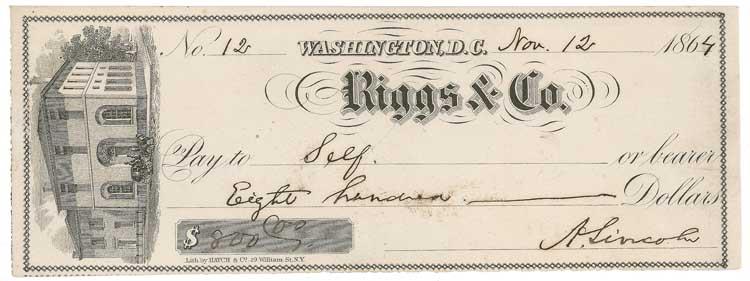 No. 12 WASHINGTON, D.C. Nov. 12 1864
Riggs & Co.
Pay to Self. or bearer
Eight hundred Dollars
$ 800 00
A. Lincoln
Lith. by HATCH & Co. 29 William St. N.Y.